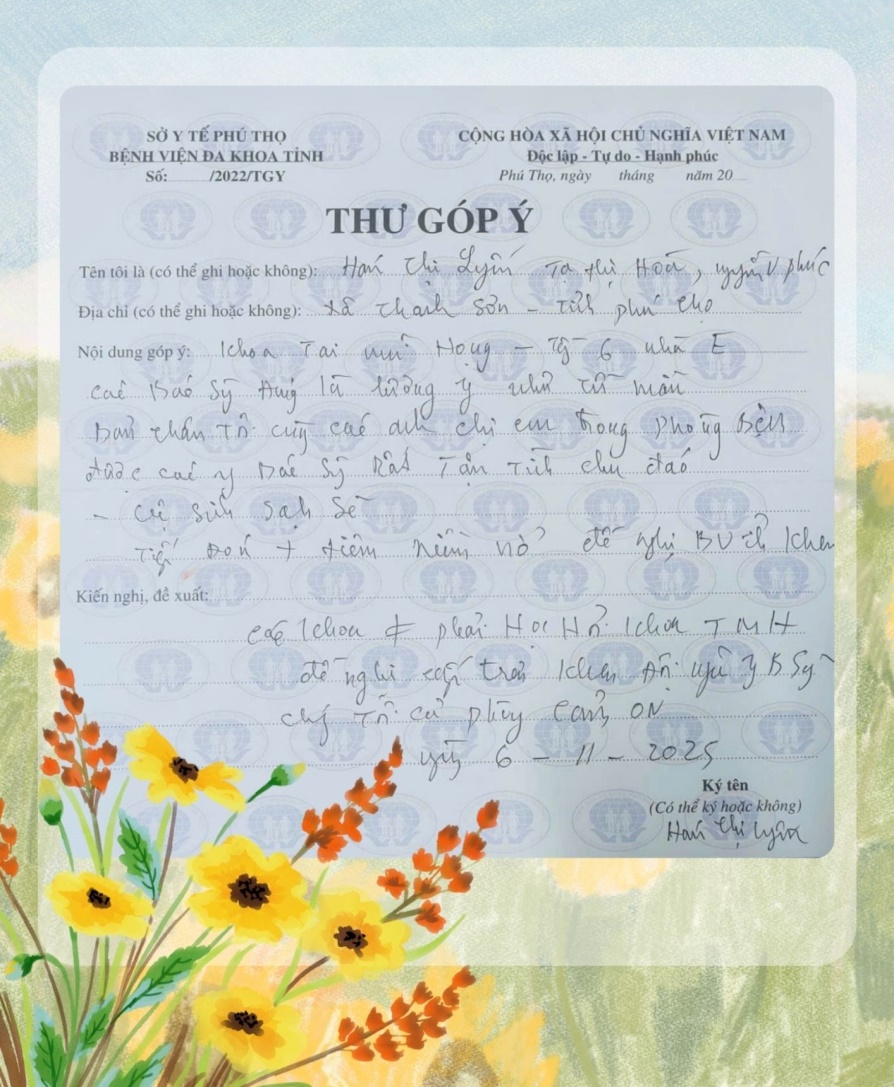 SỞ Y TẾ PHÚ THỌ
BỆNH VIỆN ĐA KHOA TỈNH
Số: /2022/TGY
CỘNG HÒA XÃ HỘI CHỦ NGHĨA VIỆT NAM
Độc lập - Tự do - Hạnh phúc
Phú Thọ, ngày tháng năm 20
THƯ GÓP Ý
Tên tôi là (có thể ghi hoặc không): Hán Thị Tạ thị Hoa, phúc
Địa chỉ (có thể ghi hoặc không): xã Thanh Sơn - Tỉnh phú thọ
Nội dung góp ý: Khoa Tai mũi Họng - Tầng 6 nhà E
các Bác Sỹ là lương y như từ mẫu
Bản thân Tôi cùng các anh chị em trong phòng Bệnh
được các y Bác Sỹ Rất Tận Tình chu đáo
- sạch Sẽ
Tiếp Đón + niềm nở đề nghị BV Khen
Kiến nghị, đề xuất:
các khoa ≠ phải Học Hỏi khoa TMH
đề nghị khen y B Sỹ
cảm ơN
6 - 11 - 2025
Ký tên
(Có thể ký hoặc không)
Hán Thị